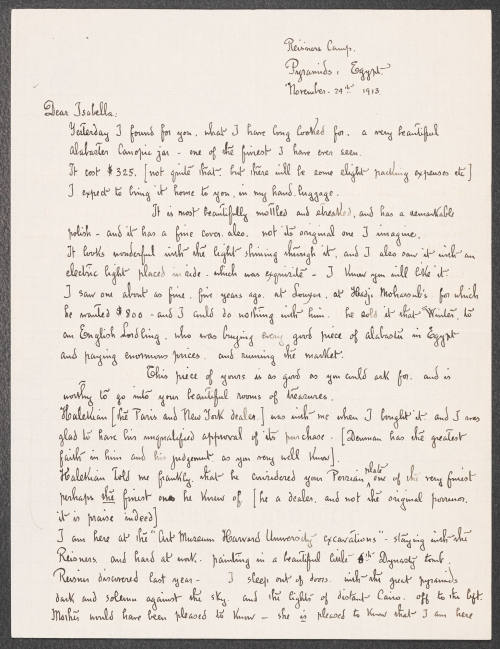 Reisners Camp.
Pyramids, Egypt.
November. 24th 1913.
Dear Isabella:
Yesterday I found for you, what I have long looked for, a very beautiful
Alabaster Canopic jar - one of the finest I have ever seen.
It cost $325. [not quite that, but there will be some slight packing expenses etc]
I expect to bring it home to you, in my hand luggage.
It is most beautifully mottled and streaked, and has a remarkable
polish - and it has a fine cover, also, not its original one I imagine.
It looks wonderful with the light shining through it, and I also saw it with an
electric light placed inside - which was exquisite - I know you will like it.
I saw one about as fine, five years ago, at Louxor, at Hadji Mohassib's for which
he wanted $800 - and I could do nothing with him. he sold it that Winter, to
an English Lordling, who was buying every good piece of alabaster in Egypt
and paying enormous prices, and ruining the market.
This piece of yours is as good as you could ask for, and is
worthy to go into your beautiful rooms of treasures.
Kalekian [the Paris and New York dealer] was with me when I bought it and I was
glad to have his unqualified approval of its purchase. [Denman has the greatest
faith in him and his judgement as you very well know].
Kalekian told me frankly, that he considered your Persian plate one of the very finest
perhaps the finest one he knew of [he a dealer, and not the original
it is praise indeed]
I am here at the "Art Museum Harvard University excavations" - staying with the
Reisners, and hard at work, painting in a beautiful little 6th Dynasty tomb,
Reisner discovered last year - I sleep out of doors, with the great pyramids
dark and solemn against the sky, and the lights of distant Cairo, off to the left.
Mother would have been pleased to know - she is pleased to know that I am here